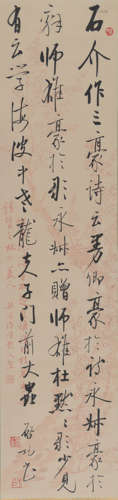 石介作三豪詩云曼卿豪於詩永叔豪於
辭師雄豪於歌永叔亦贈師雄杜默之歌少見
有云学海波中老龍夫子門前大蟲
啟功